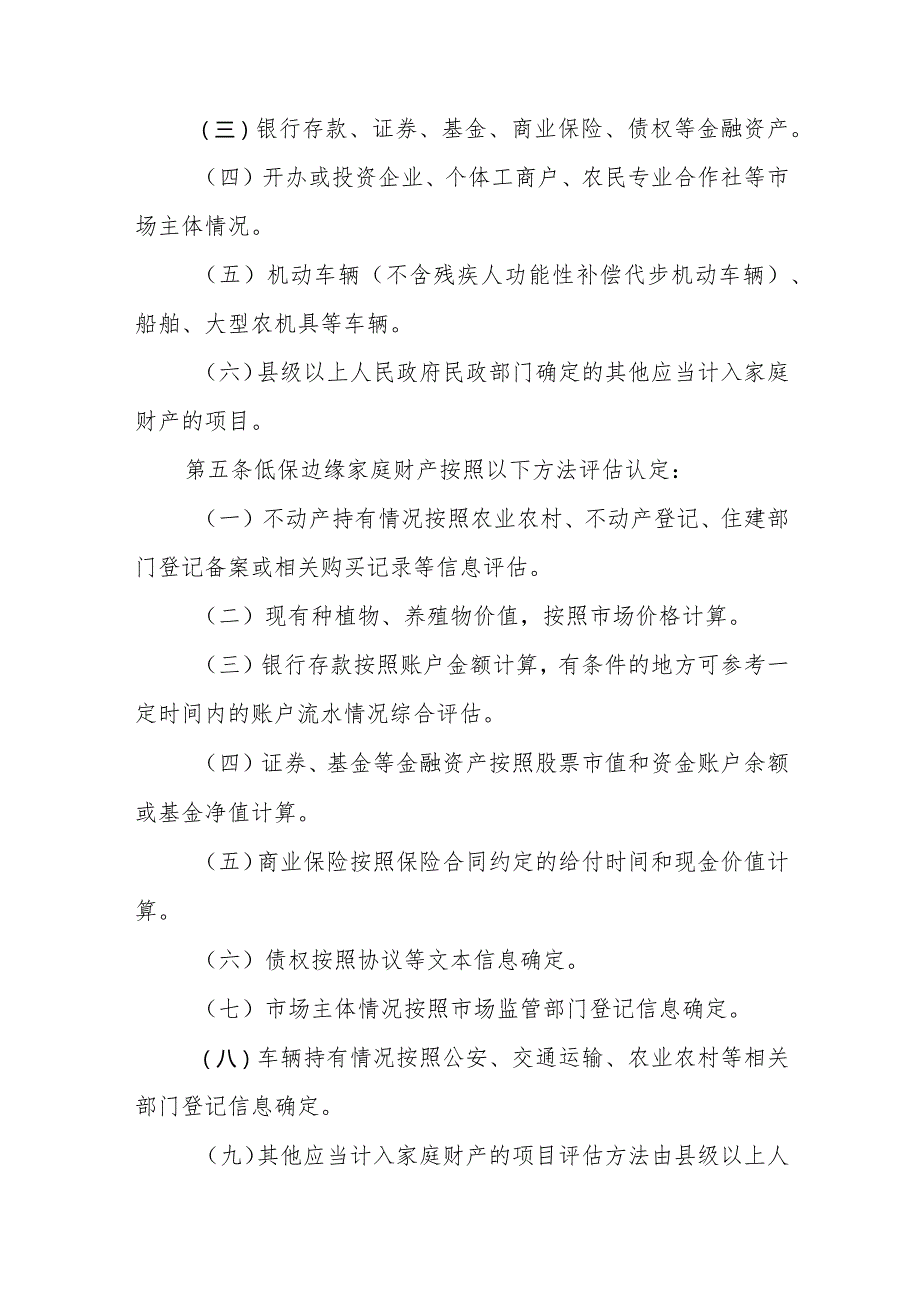 (三)银行存款、证券、基金、商业保险、债权等金融资产。
（四）开办或投资企业、个体工商户、农民专业合作社等市
场主体情况。
（五）机动车辆（不含残疾人功能性补偿代步机动车辆）、
船舶、大型农机具等车辆。
（六）县级以上人民政府民政部门确定的其他应当计入家庭
财产的项目。
第五条低保边缘家庭财产按照以下方法评估认定：
（一）不动产持有情况按照农业农村、不动产登记、住建部
门登记备案或相关购买记录等信息评估。
（二）现有种植物、养殖物价值，按照市场价格计算。
（三）银行存款按照账户金额计算，有条件的地方可参考一
定时间内的账户流水情况综合评估。
（四）证券、基金等金融资产按照股票市值和资金账户余额
或基金净值计算。
（五）商业保险按照保险合同约定的给付时间和现金价值计
算。
（六）债权按照协议等文本信息确定。
（七）市场主体情况按照市场监管部门登记信息确定。
(八)车辆持有情况按照公安、交通运输、农业农村等相关
部门登记信息确定。
（九）其他应当计入家庭财产的项目评估方法由县级以上人